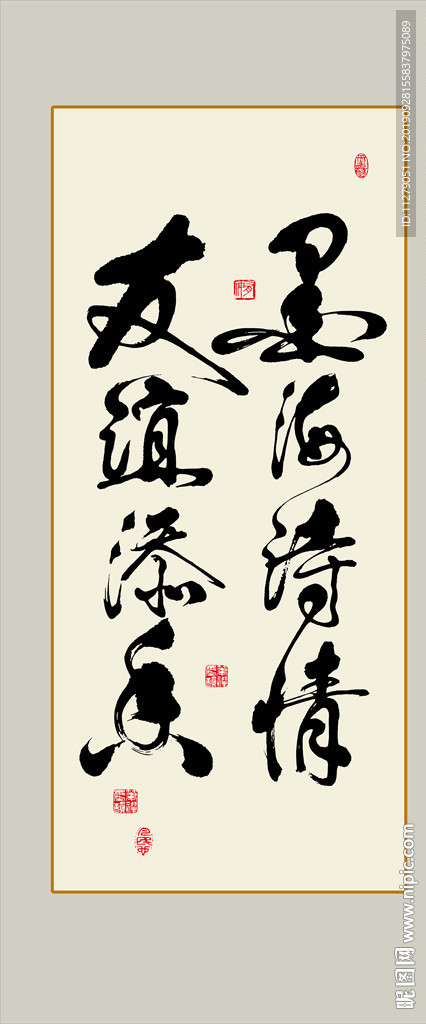 墨海诗情
友谊添香
ID:11279051 NO:20190928155837975089
昵图网 www.nipic.com